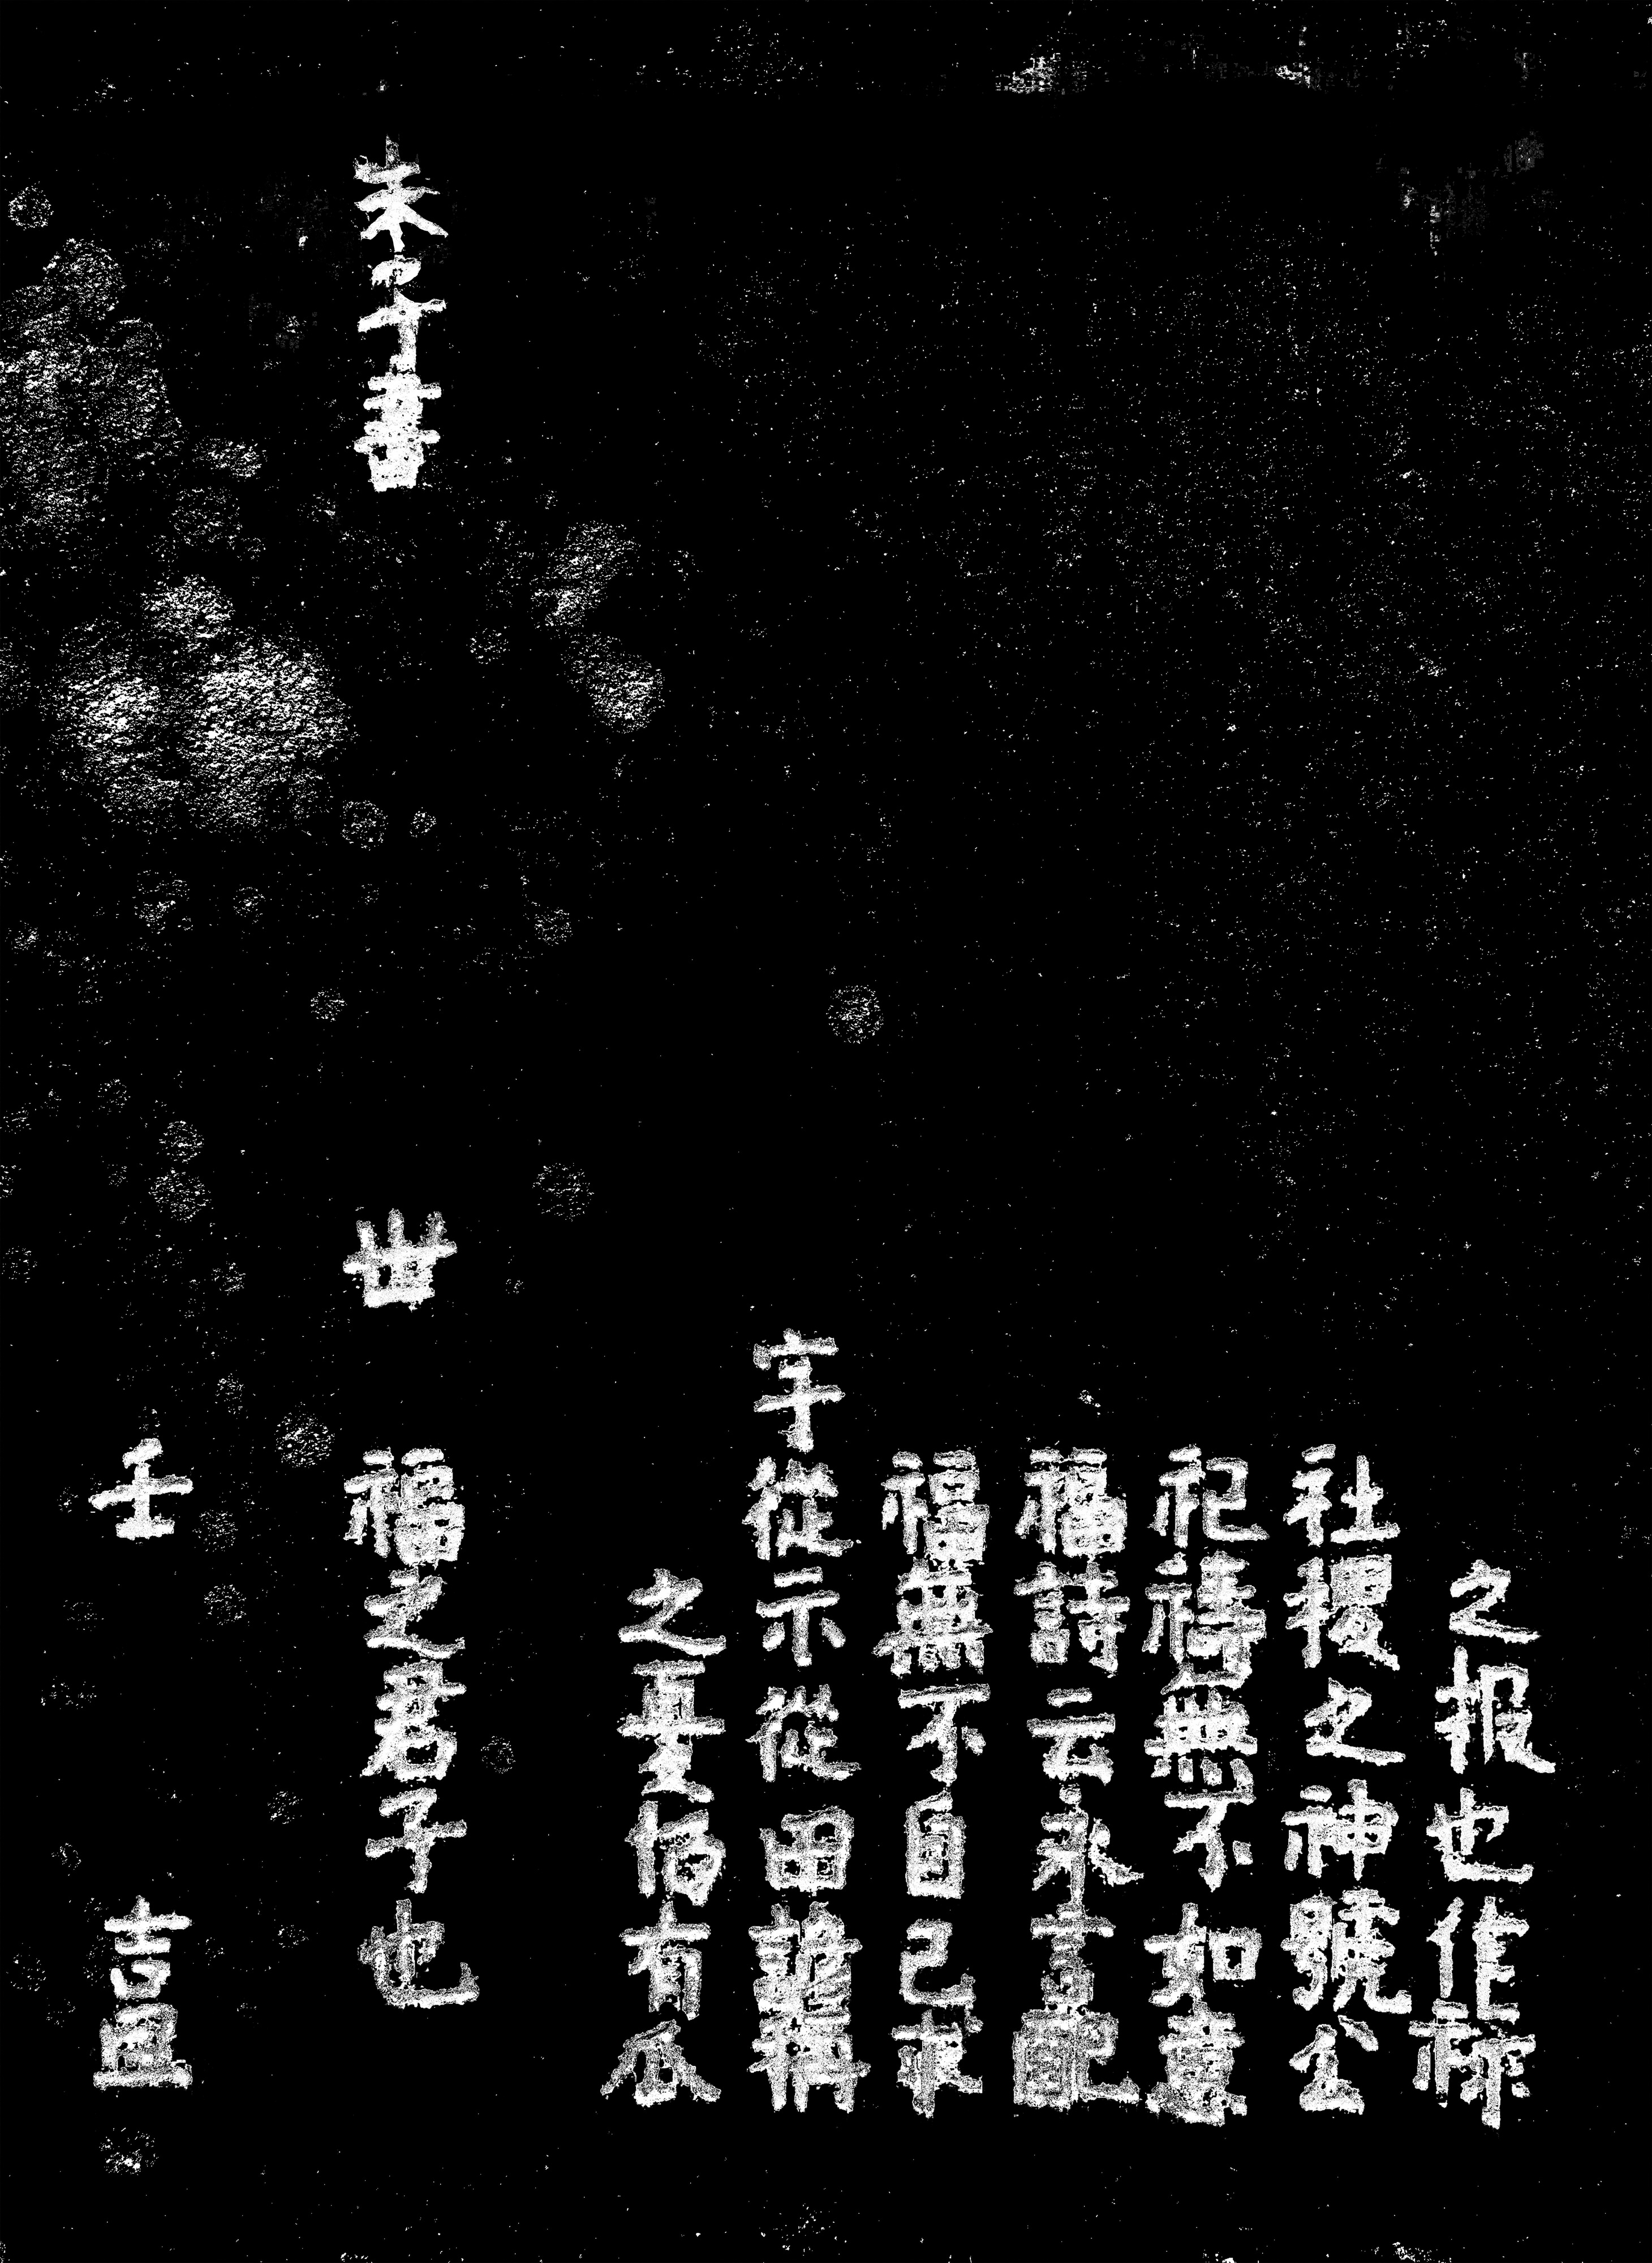 之报也作祿
社稷之神號公
祀禱無不如意
福詩云永言配
福無不自己求
字從示從田諺稱
之憂栢有瓜
朱子書 世 福之君子也
壬 吉